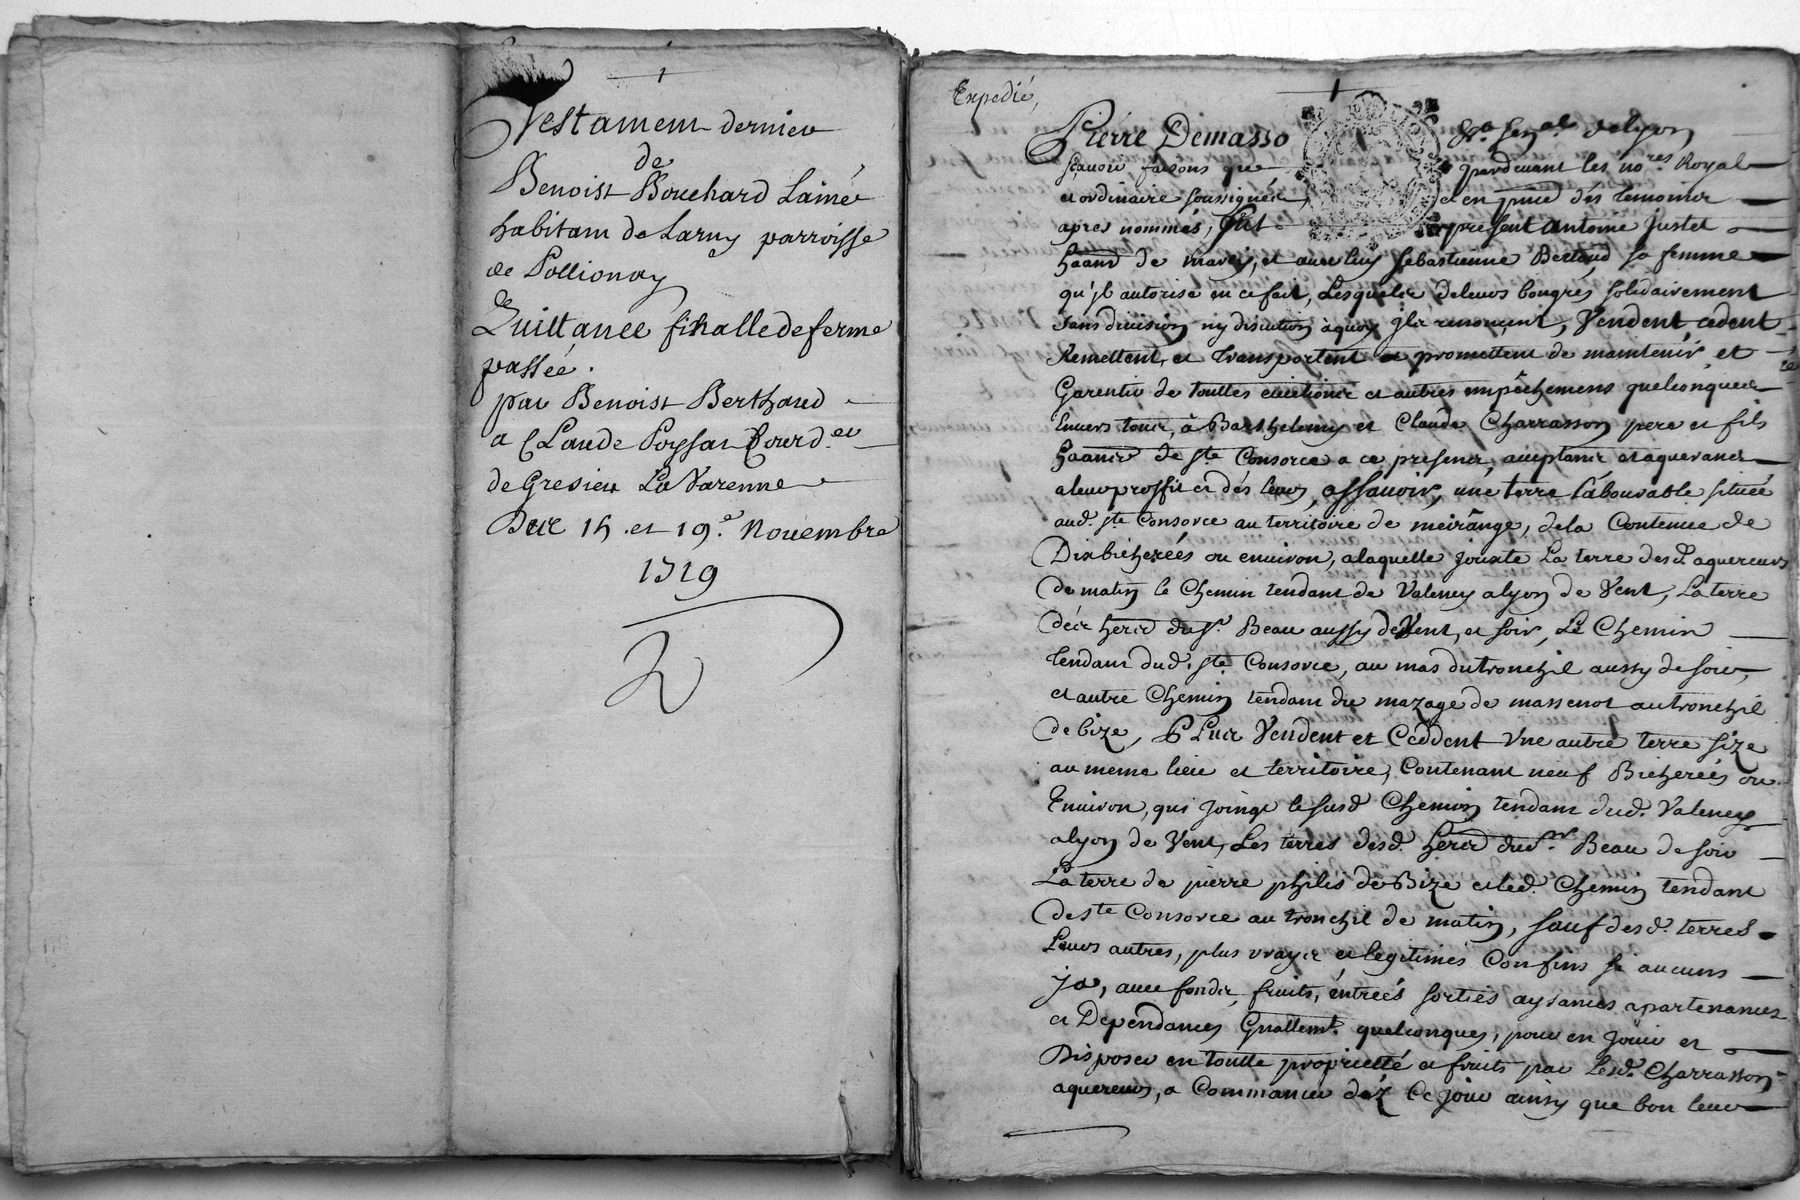 1
Testament dernier
de
Benoist Bouchard Lainé
habitant de Larny parroisse
de Pollionay
&
Quittance finalle de ferme
passée
par Benoist Berthaud
a Claude
de Gresieu La Varenne
Du 15 et 19e Novembre
1719
Expedié,
1
Pierre Demasso Senal. de Lyon
sçavoir faisons que pardevant les nores Royal
et ordinaire soussignéz et en pnce des temoins
apres nommés, fut present Antoine Justet
haant de marcy, et avec luy Sebastienne Bertaud sa femme
qu'jl autorise en ce fait, Lesquels de leurs bongrés solidairement
sans division ny discution àquoy jls renoncent, Vendent, cedent
Remettent, et transportent et promettent de maintenir et
Garentir de touttes evictions et autres empêchemens quelconques
Envers tous, à Barthelemy et Claude Charrasson pere et fils
haants de ste Consorce a ce presens, acceptants et aquerants
a leur proffit et des leurs, assavoir, une terre labourable située
aud. ste Consorce au territoire de meirange, de la Contenue de
Dix bicherées ou environ, a laquelle jouxte La terre desd. aquereurs
de matin le Chemin tendant de Valency a lyon de Vent, La terre
des hers du sr. Beau aussy de Vent, et soir, Le Chemin
tendant dud. ste Consorce, au mas du tronchil aussy de soir,
et autre Chemin tendant du mazage de massenot au tronchil
de bize, Plus Vendent et Ceddent Vne autre terre size
au meme lieu et territoire, Contenant neuf Bicherées ou
Environ, qui joinge le susd. Chemin tendant dud. Valency
a lyon de Vent, Les terres desd. hers du sr. Beau de soir
La terre de pierre philis de Bize et led. Chemin tendant
de ste Consorce au tronchil de matin, sauf desd. terres
Leurs autres, plus vrays et legitimes Confins si aucuns
ja, avec fonds, fruits, entrées sorties aysances apartenances
et Dependances Gnallemt. quelconques, pour en Jouir et
Disposer en toutte proprietté et fruits par Lesd. Charrasson
aquereurs, a Commancer déz Ce jour ainsy que bon leur